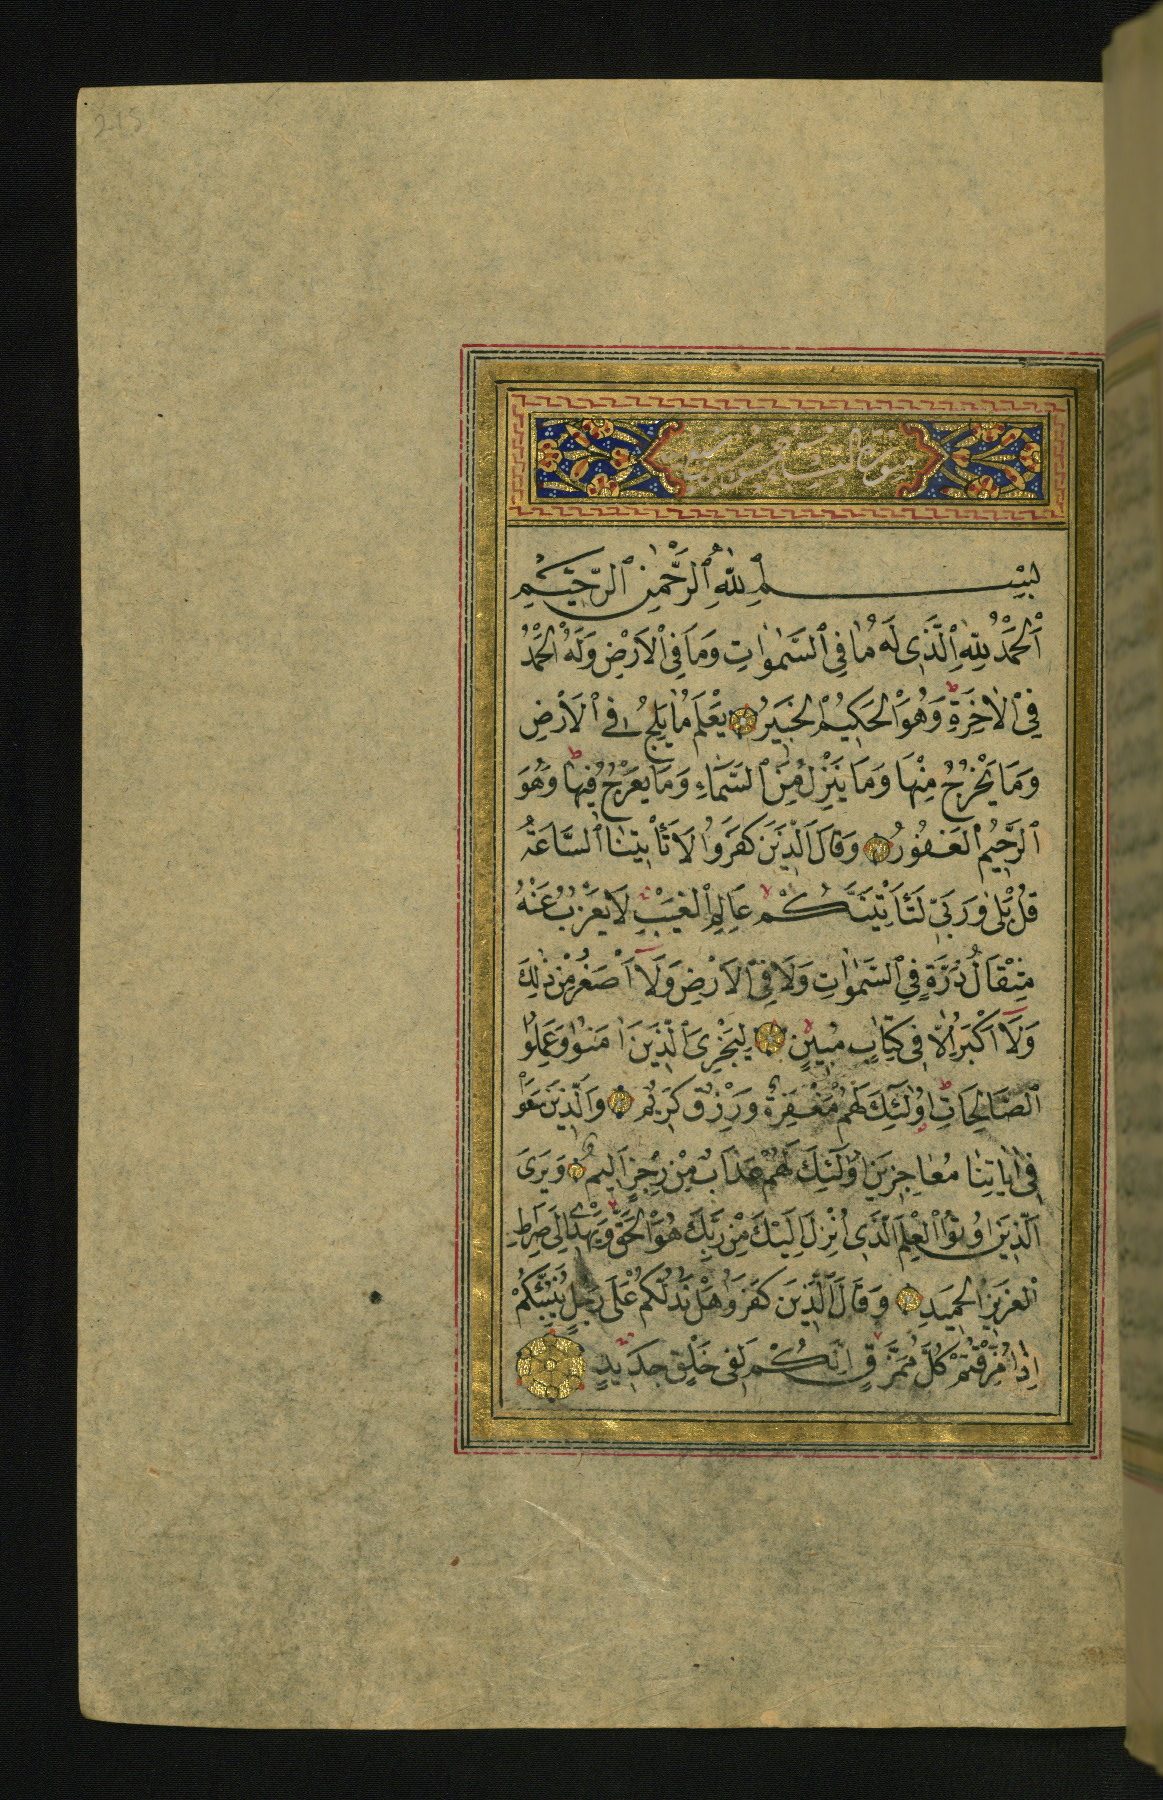 215
سورة السبا خمس
بِسْمِ ٱللّٰهِ ٱلرَّحْمٰنِ ٱلرَّحِيمِ
اَلْحَمْدُ لِلّٰهِ ٱلَّذِى لَهُ مَا فِى ٱلسَّمٰوٰاتِ وَمَا فِى ٱلْاَرْضِ وَلَهُ ٱلْحَمْدُ
فِى ٱلْاٰخِرَةِ ط وَهُوَ ٱلْحَكِيمُ ٱلْخَبِيرُ يَعْلَمُ مٰا يَلِجُ فِى ٱلْاَرْضِ
وَمَا يَخْرُجُ مِنْهَا وَمَا يَنْزِلُ مِنَ ٱلسَّمَاۤءِ وَمَا يَعْرُجُ فِيهٰا ط وَهُوَ
ٱلرَّحِيمُ ٱلْغَفُورُ وَقَالَ ٱلَّذِينَ كَفَرُوا لَا تَأْتِينَا ٱلسَّاعَةُ
قُلْ بَلٰى وَرَبِّى لَتَأْتِيَنَّكُمْ لا عَالِمِ ٱلْغَيْبِ ج لَا يَعْزُبُ عَنْهُ
مِثْقَالُ ذَرَّةٍ فِى ٱلسَّمٰوٰاتِ وَلَا فِى ٱلْاَرْضِ وَلَاۤ اَصْغَرُ مِنْ ذٰلِكَ
وَلَاۤ اَكْبَرُ اِلَّا فِى كِتَابٍ مُبِينٍ لا لِيَجْزِىَ ٱلَّذِينَ اٰمَنُوا وَعَمِلُوا
ٱلصَّالِحَاتِ ط اُولٰۤئِكَ لَهُمْ مَغْفِرَةٌ وَرِزْقٌ كَرِيمٌ وَٱلَّذِينَ سَعَوْا
فِى اٰيَاتِنَا مُعَاجِزِينَ اُولٰۤئِكَ لَهُمْ عَذَابٌ مِنْ رِجْزٍ اَلِيمٌ وَيَرَى
ٱلَّذِينَ اُوتُوا ٱلْعِلْمَ ٱلَّذِى اُنْزِلَ اِلَيْكَ مِنْ رَبِّكَ هُوَ ٱلْحَقَّ لا وَيَهْدِى اِلَى صِرَاطِ
ٱلْعَزِيزِ ٱلْحَمِيدِ وَقَالَ ٱلَّذِينَ كَفَرُوا هَلْ نَدُلُّكُمْ عَلَى رَجُلٍ يُنَبِّئُكُمْ
اِذَا مُزِّقْتُمْ كُلَّ مُمَزَّقٍ لا اِنَّكُمْ لَفِى خَلْقٍ جَدِيدٍ